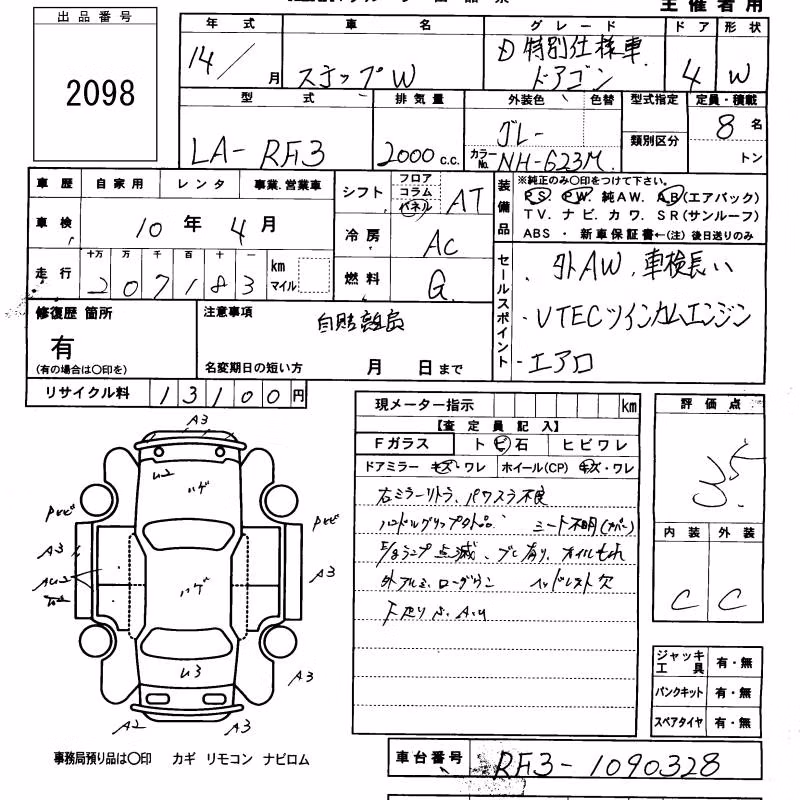 主催者用
出品番号
2098
年式 車名 グレード ドア 形状
14/ 月 ステップW D 特別仕様車 ドアゴン 4 W
型式 排気量 外装色 色替 型式指定 定員・積載
LA-RF3 2000 c.c. グレー 類別区分 8名
カラーNo. NH-623M トン
車歴 自家用 レンタ 事業.営業車
シフト フロア コラム パネル AT
装備品 ※純正のみ〇印をつけて下さい。
PS. PW. 純AW. AB(エアバック)
TV. ナビ. カワ. SR(サンルーフ)
ABS ・ 新車保証書←(注) 後日送りのみ
車検 10年 4月
冷房 AC
走行 十万 万 千 百 十 一
207183 km マイル
燃料 G
セールスポイント
・外AW、車検長い
・VTECツインカムエンジン
・エアロ
修復歴 箇所
有
(有の場合は〇印を)
注意事項
自賠離島
名変期日の短い方 月 日まで
リサイクル料 13100円
現メーター指示 km
【査定員記入】
Fガラス トビ石 ヒビワレ
ドアミラー キズ・ワレ ホイール(CP) キズ・ワレ
右ミラーリトラ、パワスラ不良
ハンドルグリップ欠品 シート不明(カバー)
点滅、ブレ有り、オイルもれ
外アルミ、ローダウン ヘッドレスト欠
評価点
3.5
内装 外装
C C
A3
U2
ハゲ
A3
A3
ハゲ
U3
A3
A2
A3
ジャッキ 工具 有・無
パンクキット 有・無
スペアタイヤ 有・無
事務局預り品は〇印 カギ リモコン ナビロム
車台番号 RF3-1090328